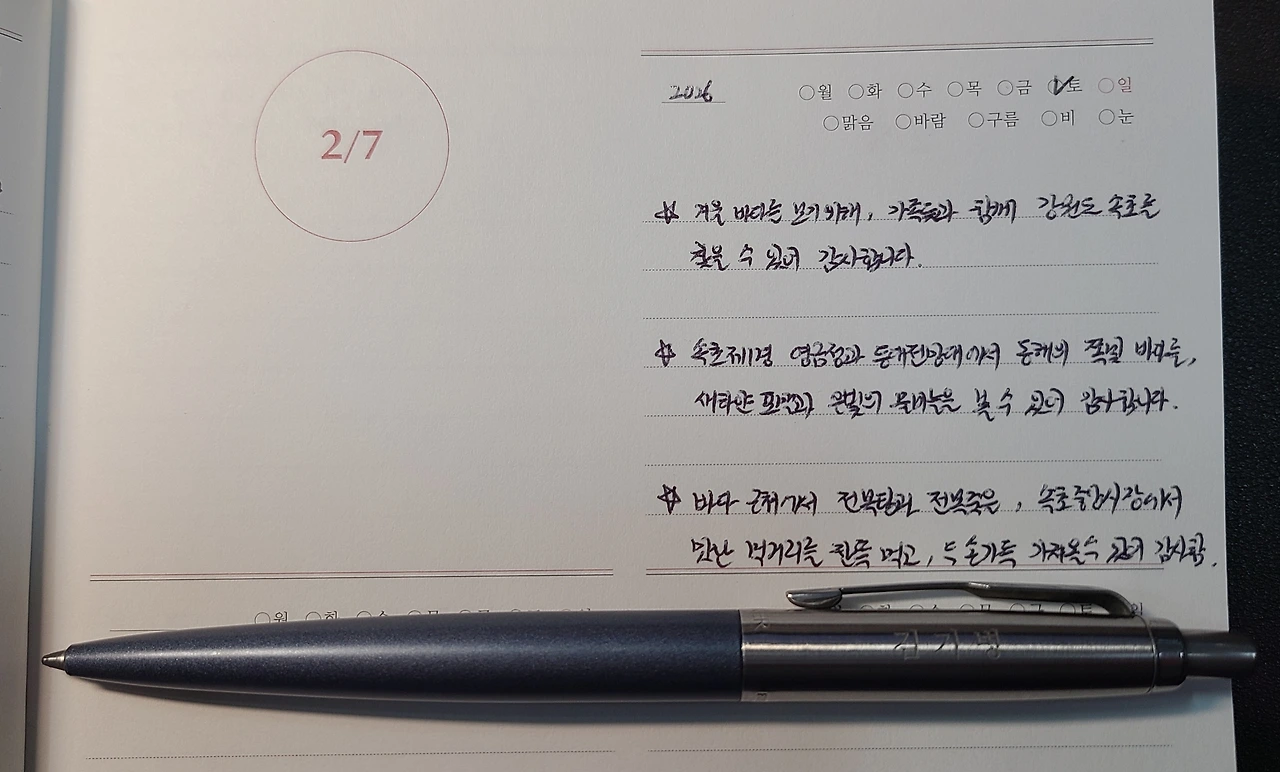 2/7
2026 ○월 ○화 ○수 ○목 ○금 ○토 ○일
○맑음 ○바람 ○구름 ○비 ○눈
☆ 겨울 바다를 보기 위해, 가족들과 함께 강원도 속초를
찾을 수 있어 감사합니다.
☆ 속초제1경 영금정과 동개전망대에서 동해의 쪽빛 바다를,
새하얀 포말과 은빛의 물비늘을 볼 수 있어 감사합니다.
☆ 바다 근처에서 전복탕과 전복죽은, 속초중앙시장에서
맛난 먹거리를 한뜩 먹고, 두 손가득 가져올수 있어 감사함.
○월 ○화 ○수 ○목
김기병